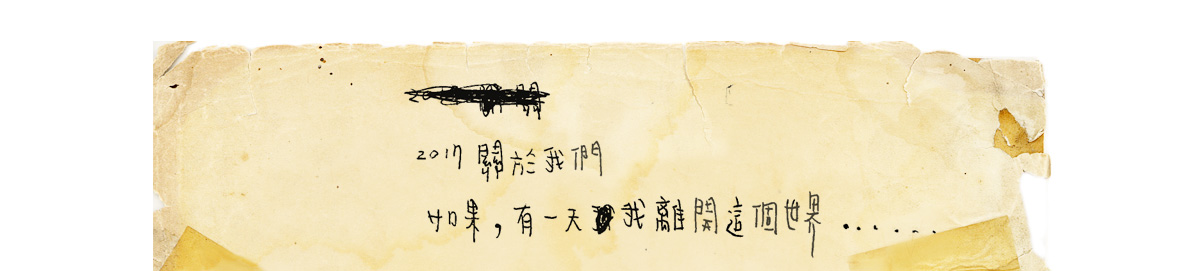 2017 關於我們
如果，有一天我離開這個世界......